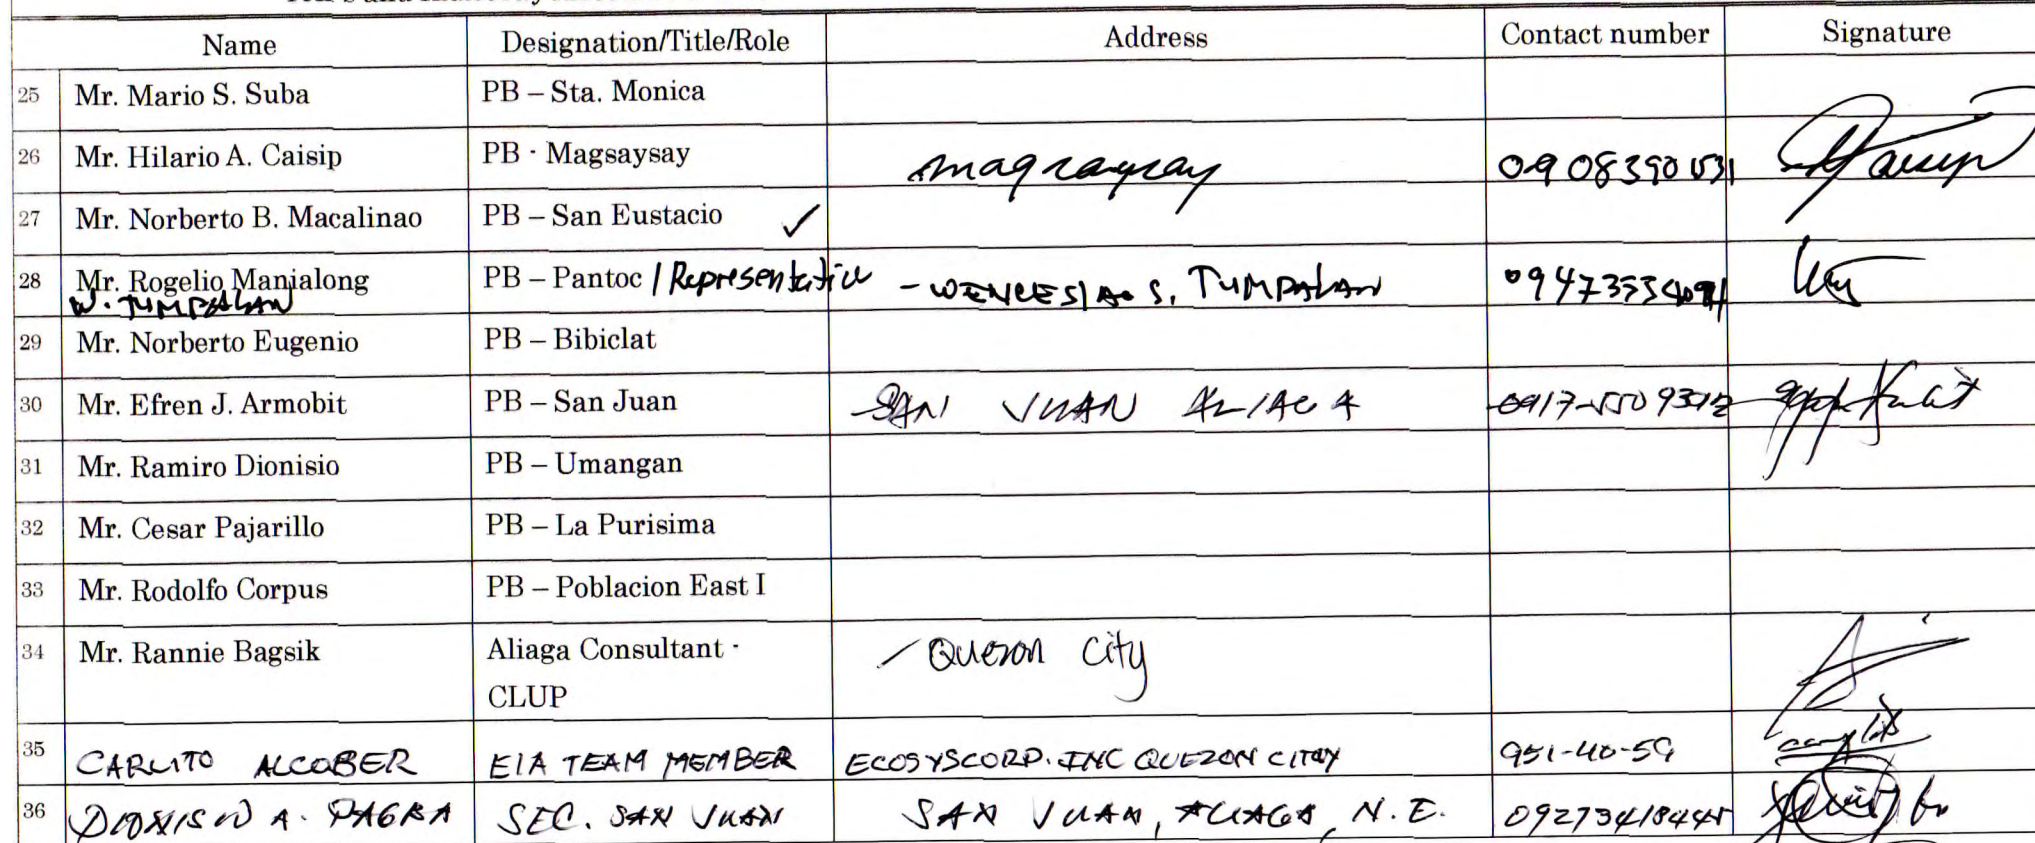 Name Designation/Title/Role Address Contact number Signature
25 Mr. Mario S. Suba PB – Sta. Monica
26 Mr. Hilario A. Caisip PB - Magsaysay magsaysay
27 Mr. Norberto B. Macalinao PB – San Eustacio ✓
28 Mr. Rogelio Manialong PB – Pantoc / Representative - WENCESLAO S. TUMPALAN
W. TUMPALAN
29 Mr. Norberto Eugenio PB – Bibiclat
30 Mr. Efren J. Armobit PB – San Juan SAN JUAN ALIAGA
31 Mr. Ramiro Dionisio PB – Umangan
32 Mr. Cesar Pajarillo PB – La Purisima
33 Mr. Rodolfo Corpus PB – Poblacion East I
34 Mr. Rannie Bagsik Aliaga Consultant - Quezon City
CLUP
35 CARLITO ALCOBER EIA TEAM MEMBER ECOSYSCORP. INC QUEZON CITY 951-40-59
36 DIONISIO A. PAGBA SEC. SAN JUAN SAN JUAN, ALIAGA, N.E. 09273418445